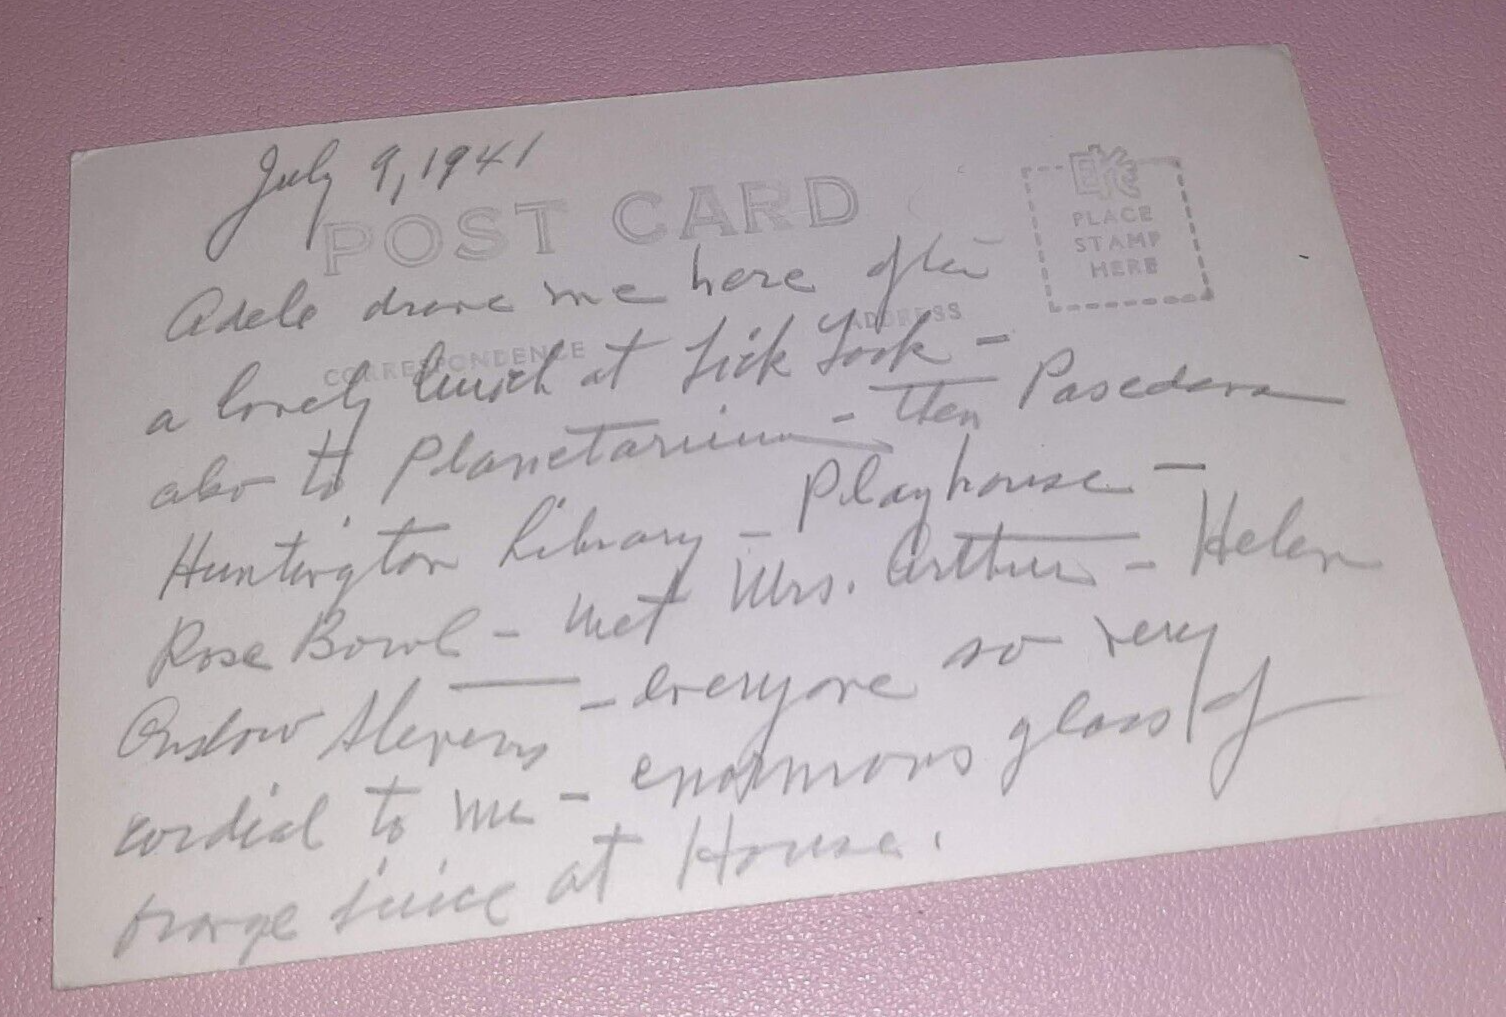 July 9, 1941
POST CARD
EKC
PLACE
STAMP
HERE
Adele drove me here after
ADDRESS
CORRESPONDENCE
a lovely lunch at
also to Planetarium - then Pasedena
Huntington Library - Playhouse -
Rose Bowl - met Mrs. Arthur - Helen
Onslow Stevens - everyone so very
cordial to me - enormous glass of
orange juice at House.